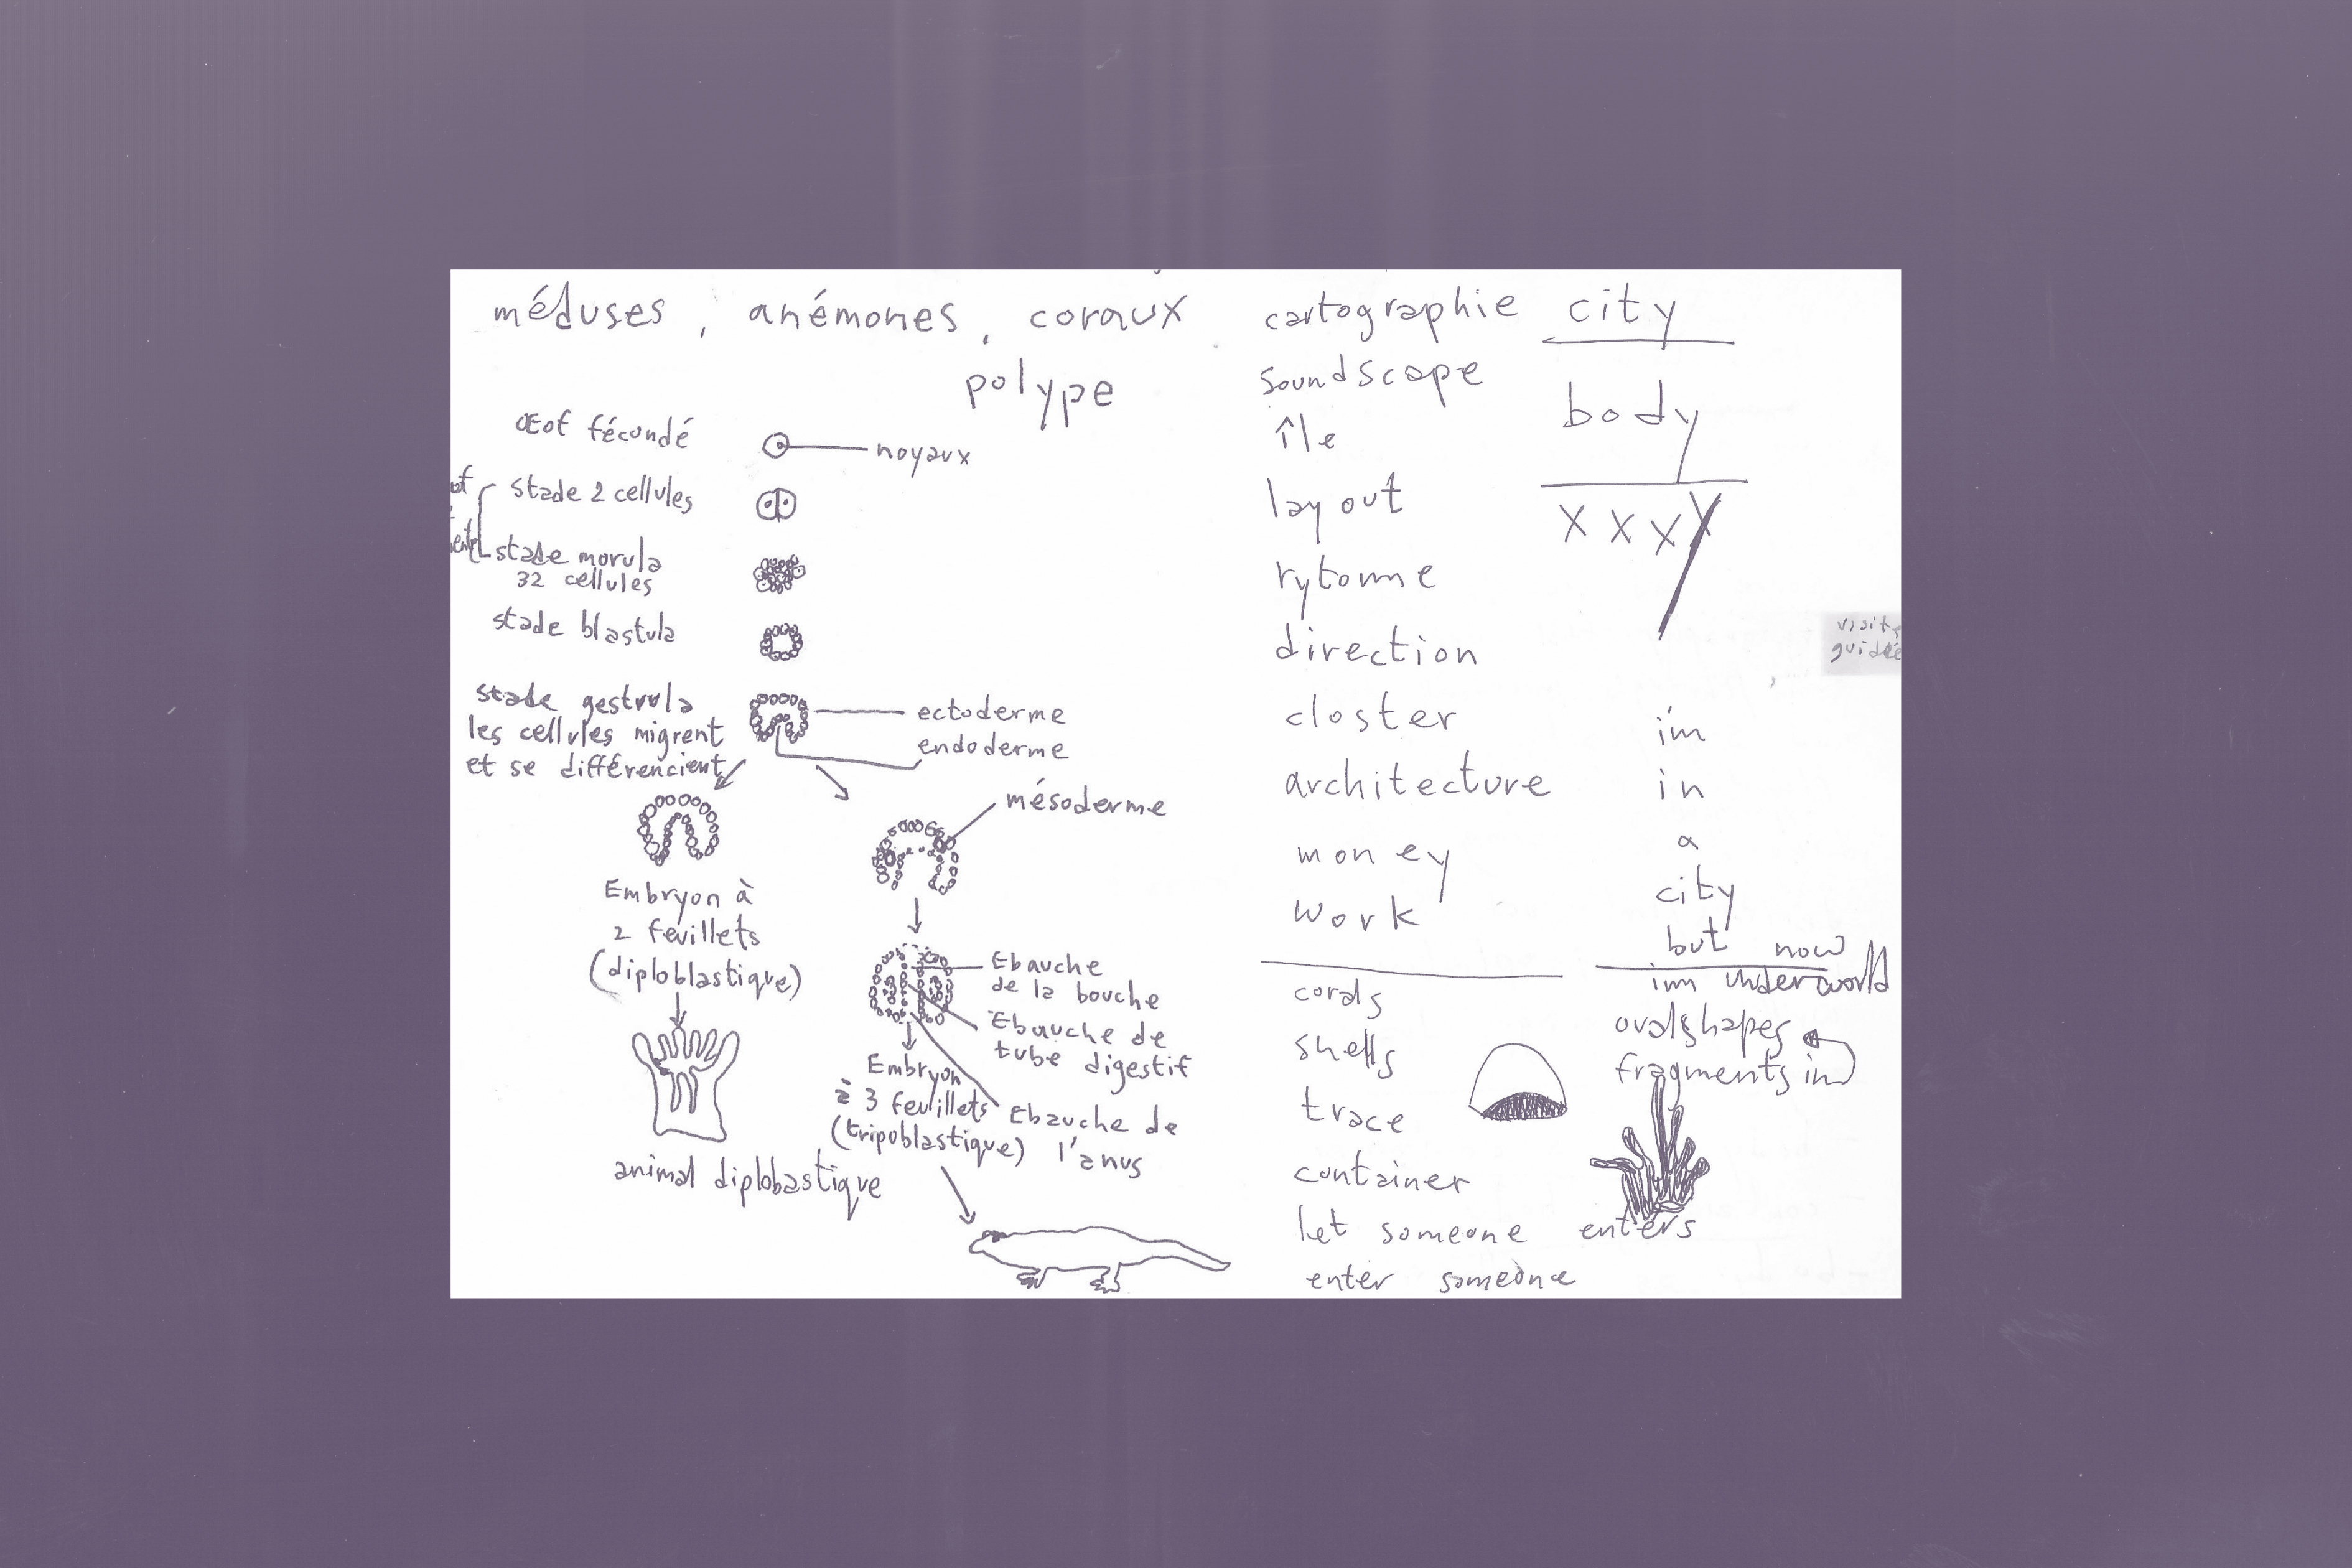 méduses, anémones, coraux
polype
Œof fécondé
noyaux
stade 2 cellules
stade morula
32 cellules
stade blastula
stade gestrula
les cellules migrent
et se différencient
ectoderme
endoderme
mésoderme
Embryon à
2 feuillets
(diploblastique)
animal diplobastique
Ebauche
de la bouche
Ebauche de
tube digestif
Embryon
à 3 feuillets
(tripoblastique)
Ebauche de
l'anus
cartographie
soundscape
île
lay out
direction
closter
architecture
money
work
corals
shells
trace
container
let someone enters
enter someone
city
body
X X X X
visite
guidée
i'm
in
a
city
but now
im underworld
oval shapes
fragments in